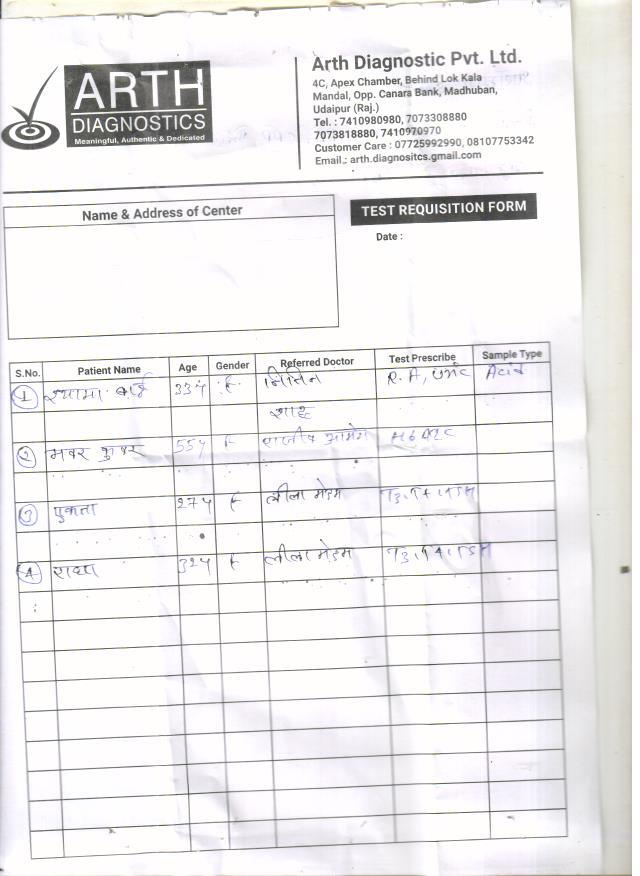 ARTH
DIAGNOSTICS
Meaningful, Authentic & Dedicated
Arth Diagnostic Pvt. Ltd.
4C, Apex Chamber, Behind Lok Kala
Mandal, Opp. Canara Bank, Madhuban,
Udaipur (Raj.)
Tel. : 7410980980, 7073308880
7073818880, 7410970970
Customer Care : 07725992990, 08107753342
Email.: arth.diagnositcs.gmail.com
Name & Address of Center
TEST REQUISITION FORM
Date :
S.No. Patient Name Age Gender Referred Doctor Test Prescribe Sample Type
1 श्यामा बाई 33y F नितिन R.A, Uric Acid
शाह
2 कुवर 55y F राजीव HbA1c
3 एकता 27y F लीला मेडम T3,T4,TSH
4 राधा 32y F लीला मेडम T3,T4,TSH